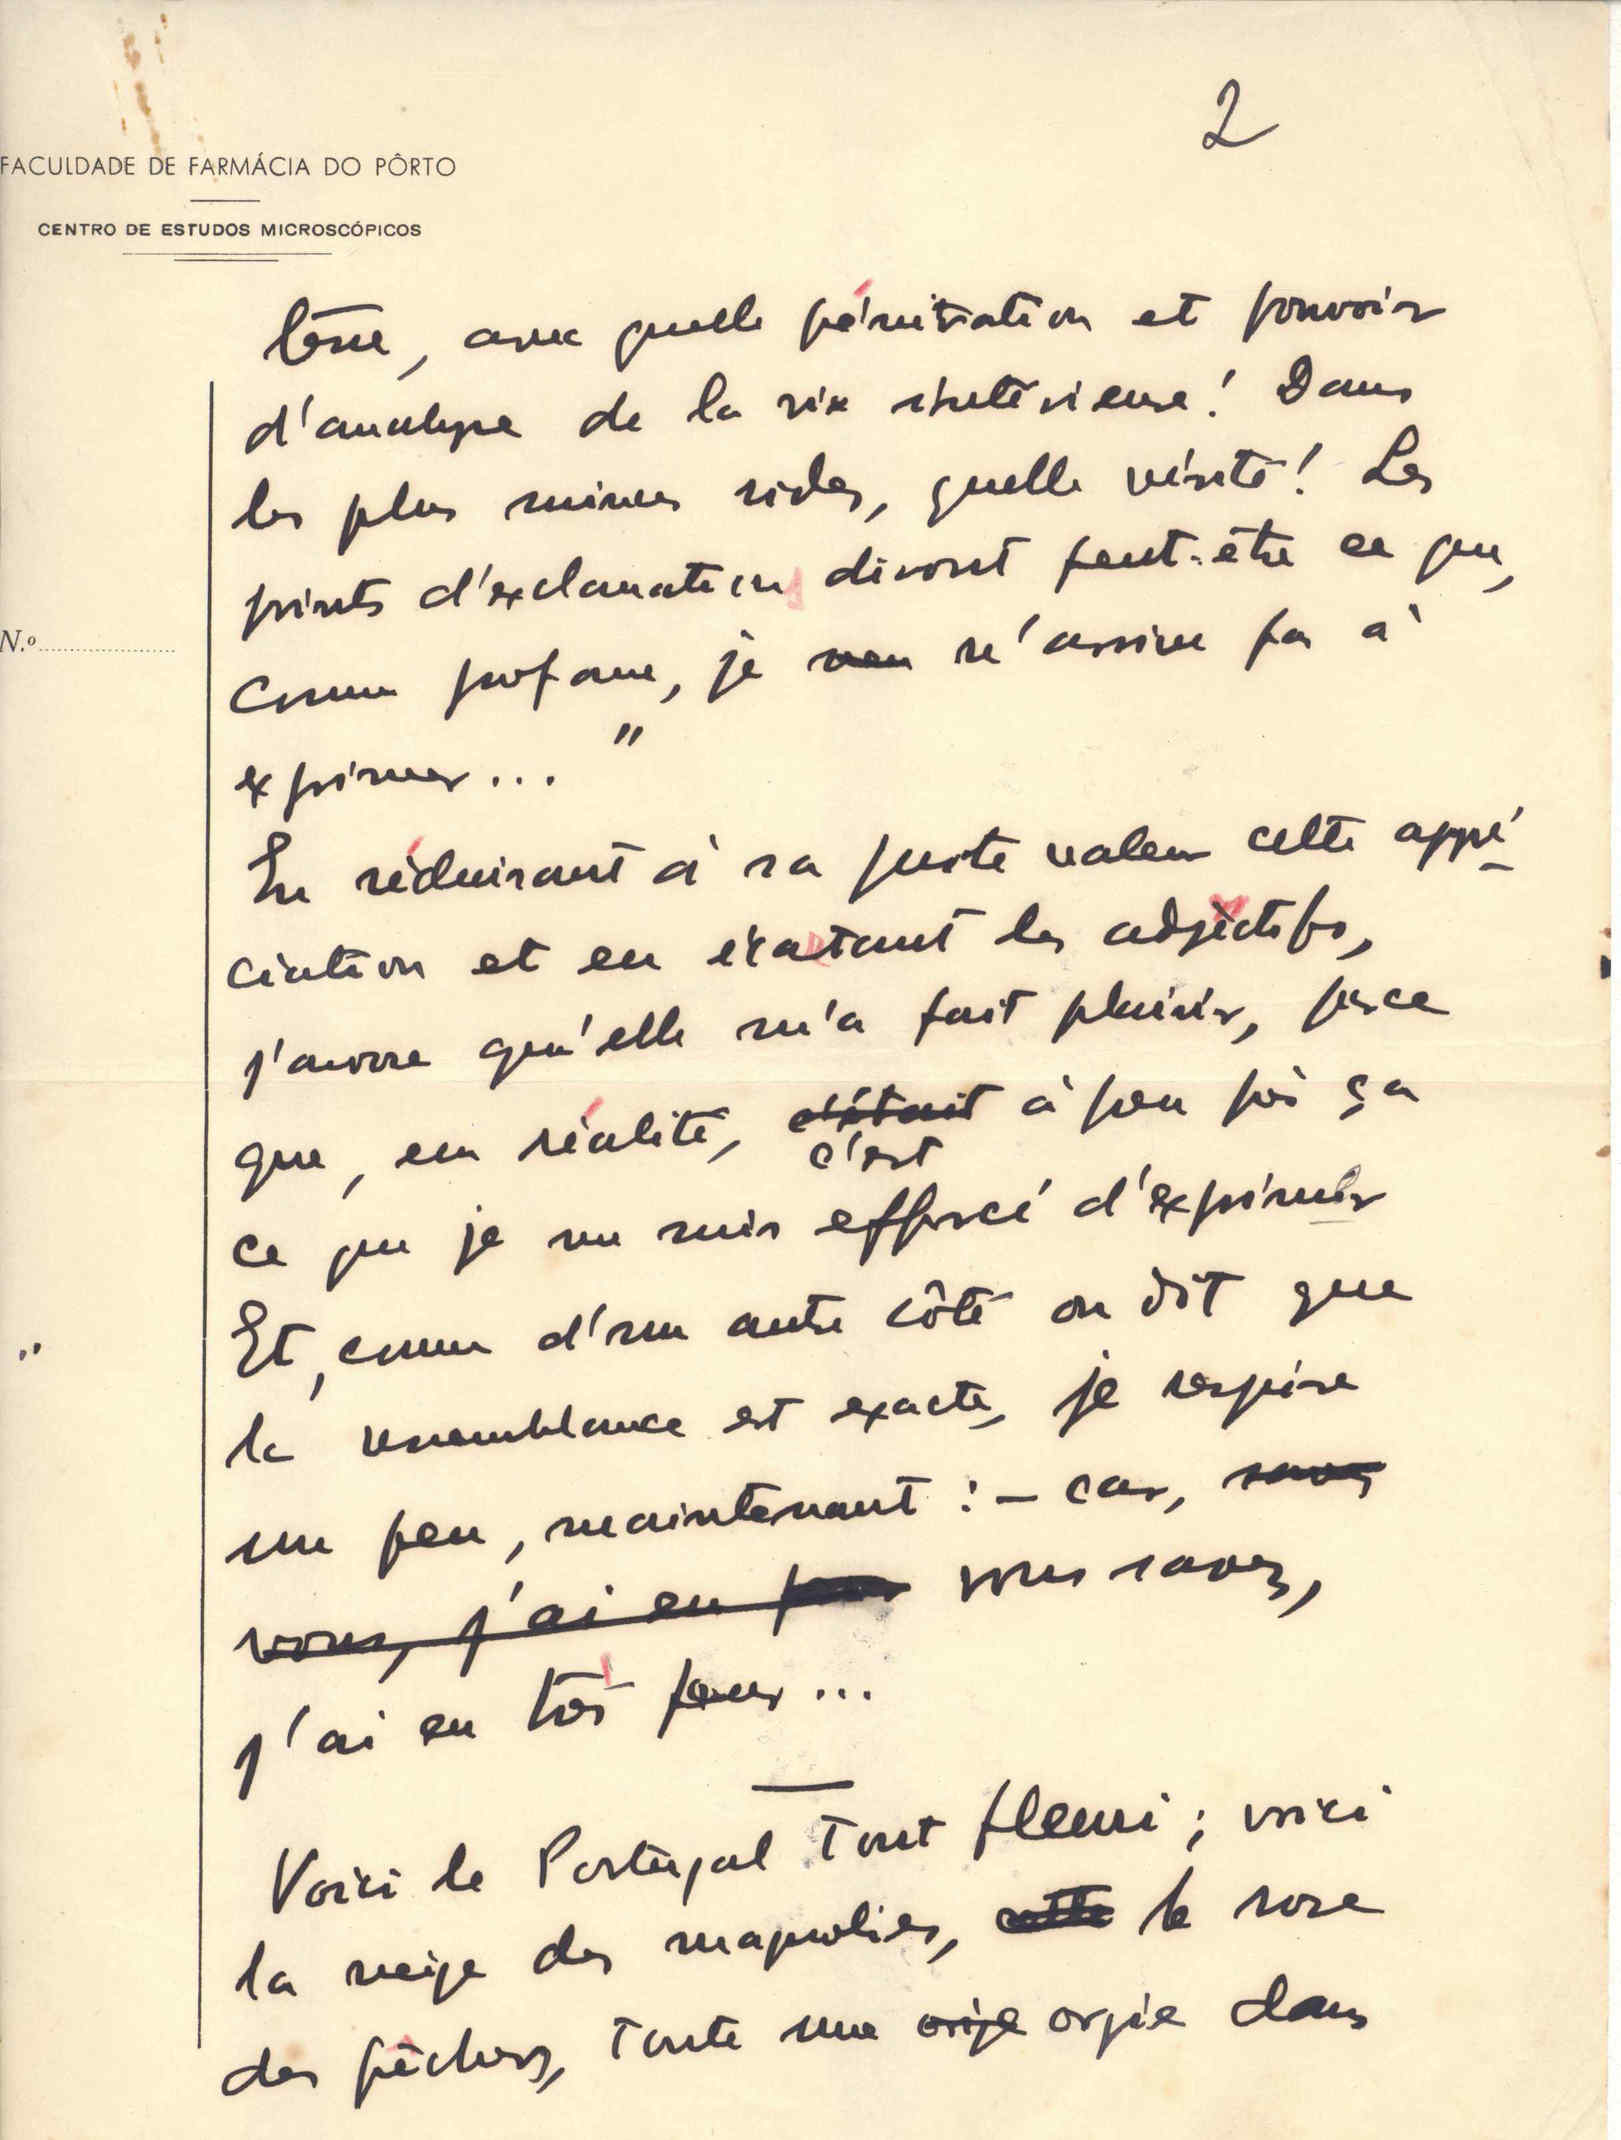 2
FACULDADE DE FARMÁCIA DO PÔRTO
CENTRO DE ESTUDOS MICROSCÓPICOS
avec quelle pénétration et pouvoir
d'analyse de la vie intérieure! Dans
les plus minces rides, quelle vérité! Les
points d'exclamation diront peut-être ce que,
N.º
comme profane, je n'arrive pas à
exprimer... "
En réduisant à sa juste valeur cette appré-
ciation et en écartant les adjectifs,
j'avoue qu'elle m'a fait plaisir, parce
que, en réalité, c'était à peu près ça
c'est
ce que je me suis efforcé d'exprimer
Et, comme d'un autre côté on dit que
la ressemblance est exacte, je respire
un peu, maintenant : – car, savez
vous, j'ai eu peur vous savez,
j'ai eu très peur...
Voici le Portugal tout fleuri ; voici
la neige des magnolies, cette le rose
des pêchers, toute une orije orgie dans